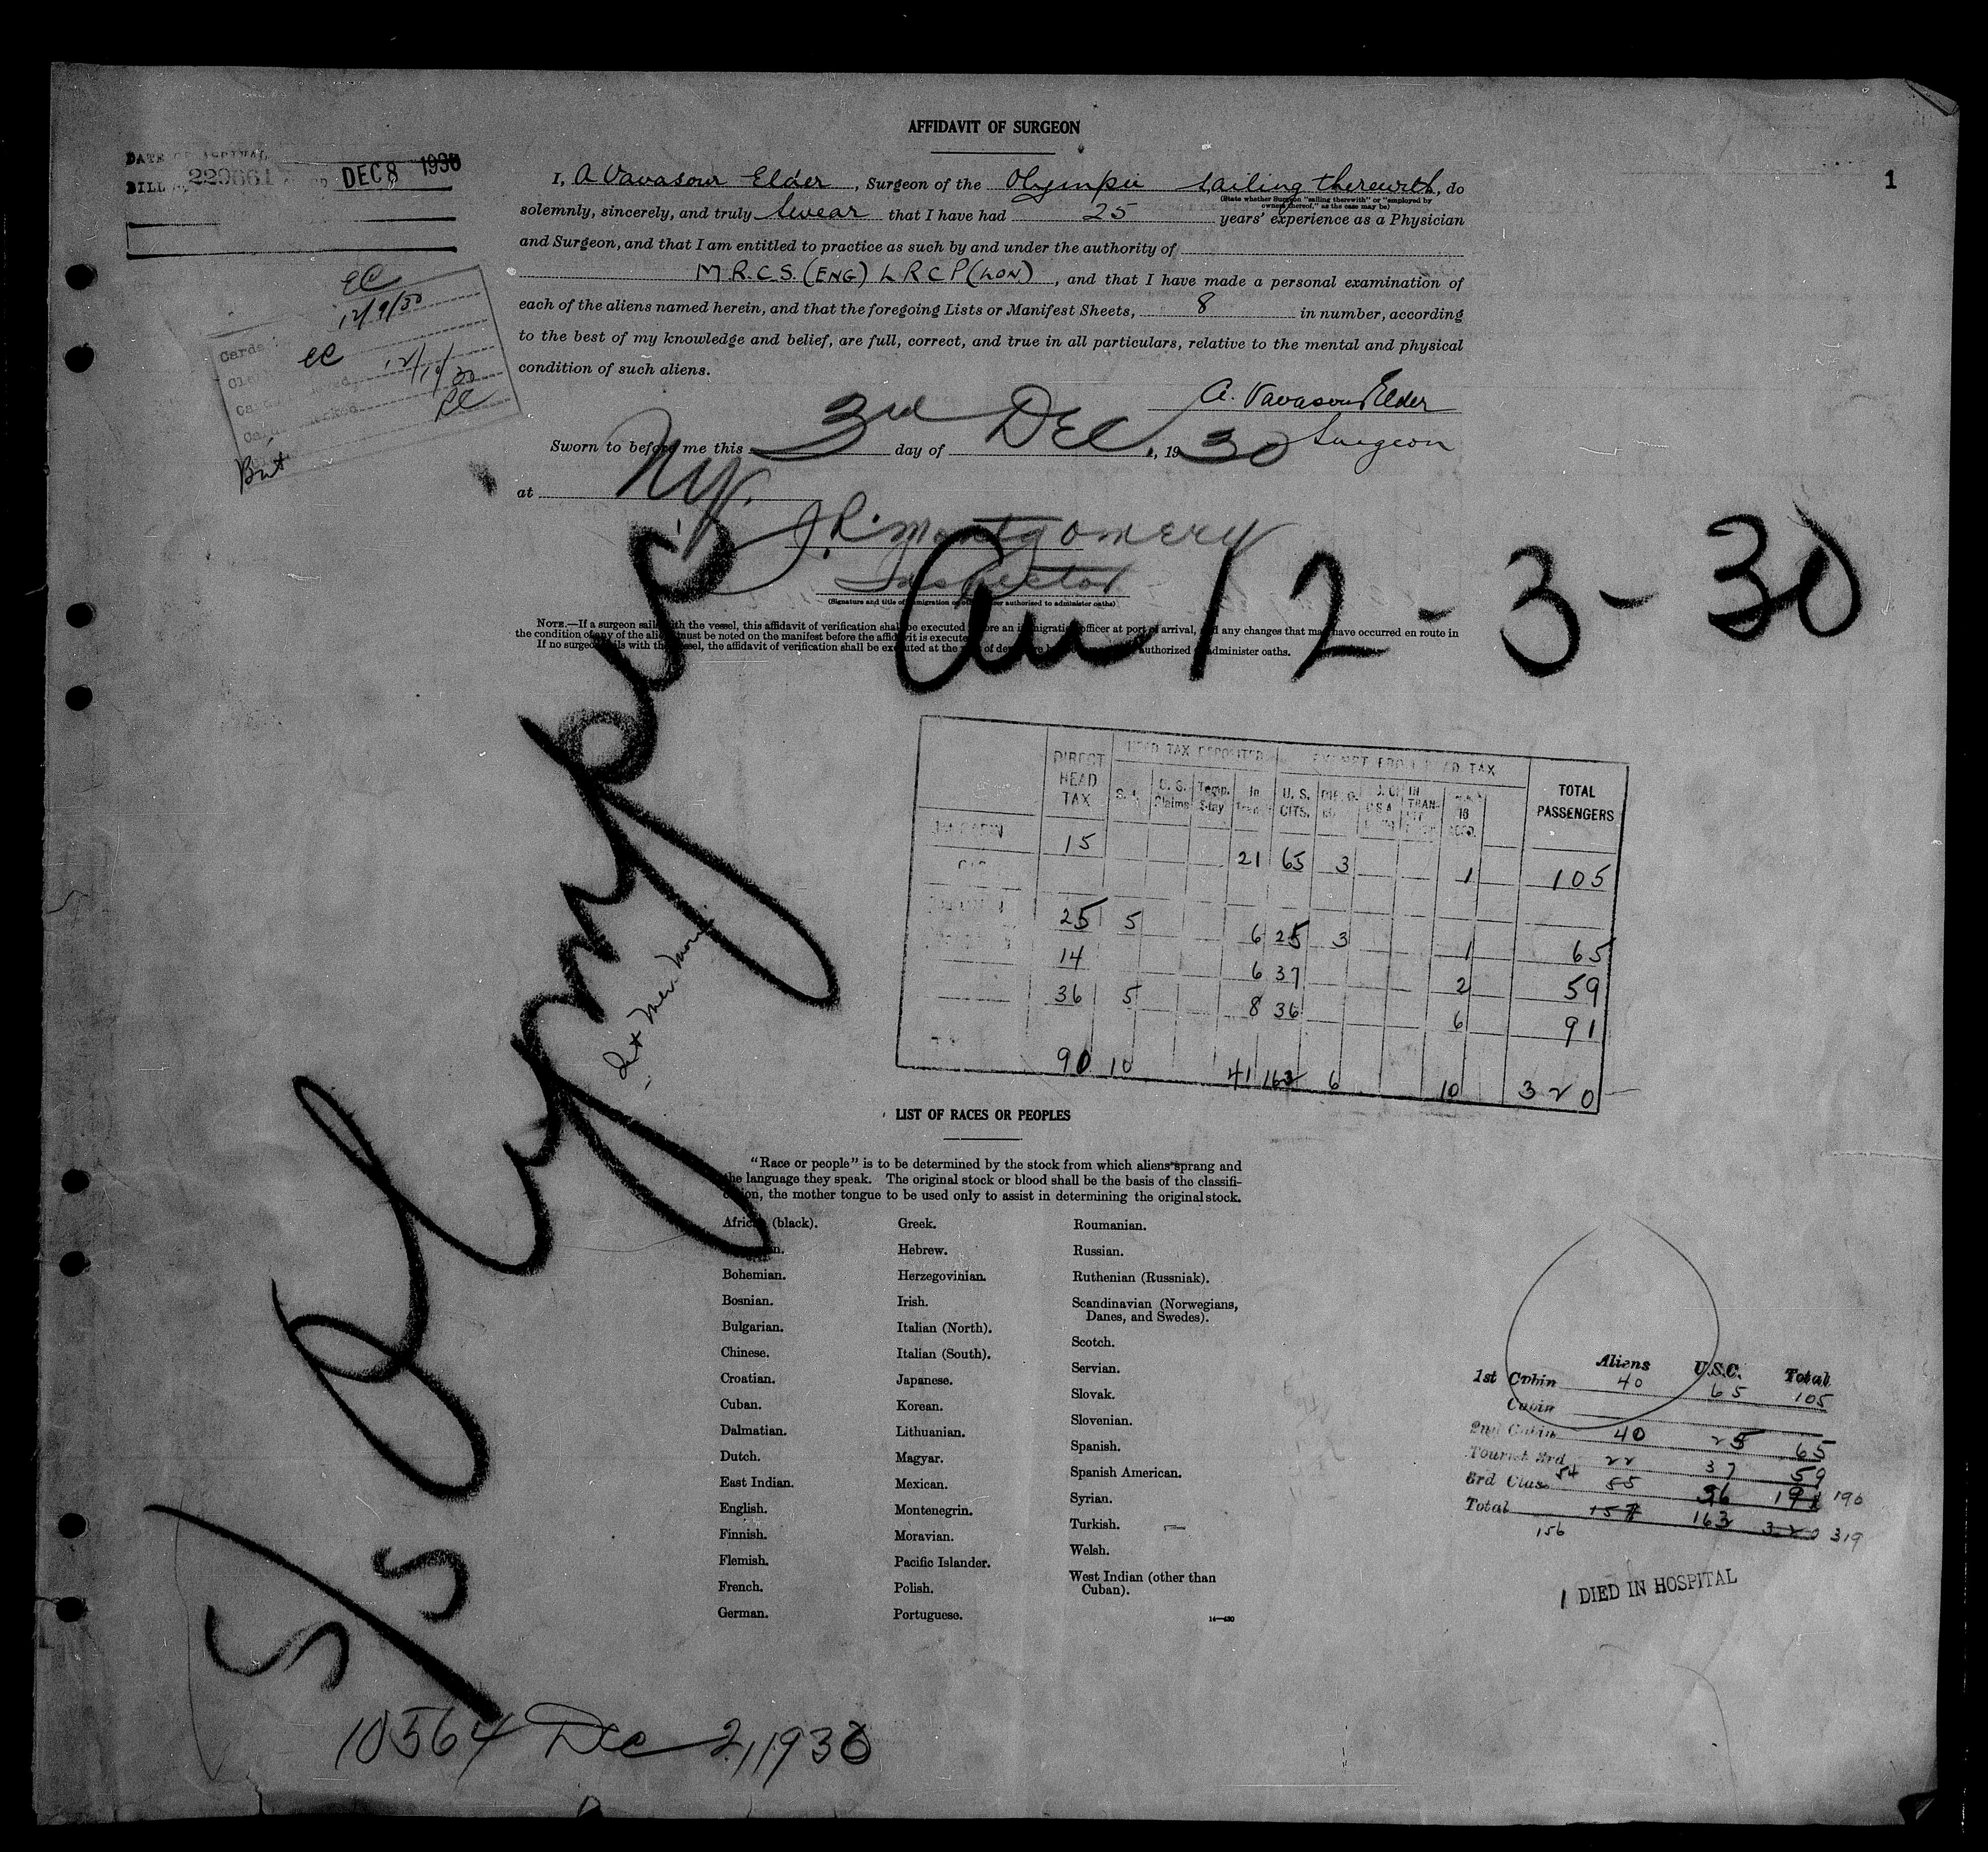 AFFIDAVIT OF SURGEON
1
DATE OF ARRIVAL
BILL 229661 DEC 8 1930
I, A Vavasour Elder, Surgeon of the Olympic sailing therewith, do
(State whether Surgeon "sailing therewith" or "employed by
owners thereof," as the case may be)
solemnly, sincerely, and truly swear that I have had 25 years' experience as a Physician
and Surgeon, and that I am entitled to practice as such by and under the authority of
M.R.C.S. (ENG) L R C P (LON), and that I have made a personal examination of
each of the aliens named herein, and that the foregoing Lists or Manifest Sheets, 8 in number, according
to the best of my knowledge and belief, are full, correct, and true in all particulars, relative to the mental and physical
condition of such aliens.
EC
12/9/30
Cards
EC
12/10/30
EC
A. Vavasour Elder
Surgeon
Sworn to before me this 3rd day of Dec, 1930
at NY.
J.R. Montgomery
Inspector
(Signature and title of immigration officer authorized to administer oaths)
12-3-30
NOTE.—If a surgeon sails with the vessel, this affidavit of verification shall be executed before an immigration officer at port of arrival, and any changes that may have occurred en route in
the condition of any of the aliens must be noted on the manifest before the affidavit is executed.
If no surgeon sails with the vessel, the affidavit of verification shall be executed at the authorized administer oaths.
S/S Olympic
DIRECT HEAD TAX
HEAD TAX DEPOSITED
EXEMPT FROM HEAD TAX
TOTAL PASSENGERS
U. S. Claims Temp. Stay In Trans U. S. CITS.
1st CABIN 15 21 65 3 1 105
25 5 6 25 3 1 65
14 6 37 2 59
36 5 8 36 6 91
90 10 41 163 6 10 320
LIST OF RACES OR PEOPLES
"Race or people" is to be determined by the stock from which aliens sprang and
the language they speak. The original stock or blood shall be the basis of the classifi-
cation, the mother tongue to be used only to assist in determining the original stock.
African (black).
Bohemian.
Bosnian.
Bulgarian.
Chinese.
Croatian.
Cuban.
Dalmatian.
Dutch.
East Indian.
English.
Finnish.
Flemish.
French.
German.
Greek.
Hebrew.
Herzegovinian.
Irish.
Italian (North).
Italian (South).
Japanese.
Korean.
Lithuanian.
Magyar.
Mexican.
Montenegrin.
Moravian.
Pacific Islander.
Polish.
Portuguese.
Roumanian.
Russian.
Ruthenian (Russniak).
Scandinavian (Norwegians,
Danes, and Swedes).
Scotch.
Servian.
Slovak.
Slovenian.
Spanish.
Spanish American.
Syrian.
Turkish.
Welsh.
West Indian (other than
Cuban).
Aliens U.S.C. Total
1st Cabin 40 65 105
Cabin
2nd Cabin 40 25 65
Tourist 3rd 22 37 59
3rd Class 54 55 36 191 190
Total 157 163 320 319
156
1 DIED IN HOSPITAL
10564 Dec 2, 1930